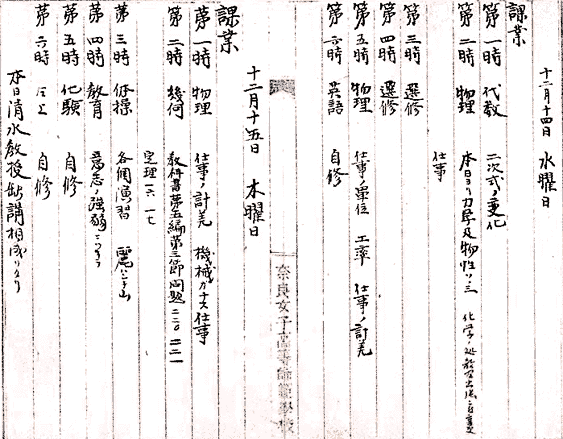 十二月十四日 水曜日
課業
第一時 代数 二次式ノ変化
第二時 物理 本日ヨリ力学及物性
仕事
第三時 選修
第四時 選修
第五時 物理 仕事ノ単位 工率 仕事ノ計算
第六時 英語 自修
奈良女子高等師範學校
十二月十五日 木曜日
課業
第一時 物理 仕事ノ計算 機械ガナス仕事
第二時 幾何 教科書第五編第三節問題
定理一六 一七
第三時 体操 各個演習
第四時 教育 意志ノ強弱
第五時 化験 自修
第六時 仝上 自修
本日清水教授缺講相成リタリ